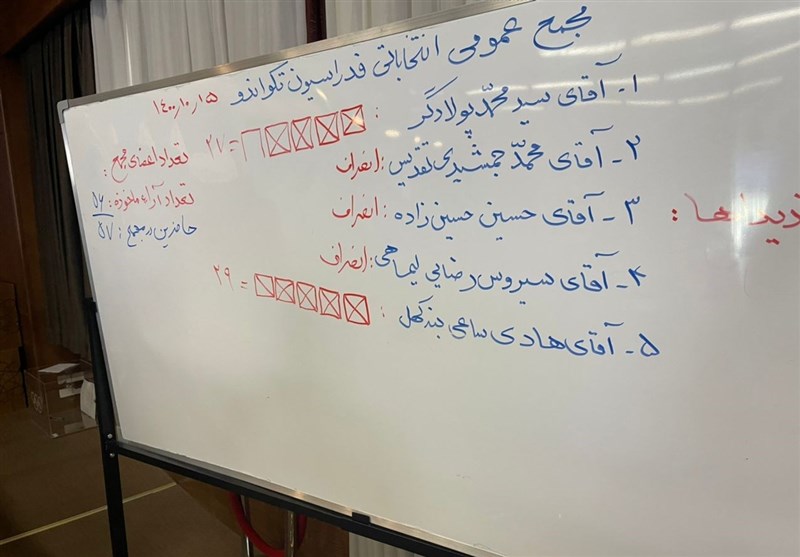 مجمع عمومی انتخاباتی فدراسیون تکواندو ۱۴۰۰٫۱۰٫۱۵
۱- آقای سید محمد پولادگر : = ۲۷
۲- آقای محمد جمشیدی تقدیس : انصراف
۳- آقای حسین حسین زاده : انصراف
۴- آقای سیروس رضایی لیماهی : انصراف
۵- آقای هادی ساعی بنه کهل : = ۲۹
تعداد اعضای مجمع :
تعداد آراء ماخوذه : ۵۶
حاضرین در مجمع : ۵۷